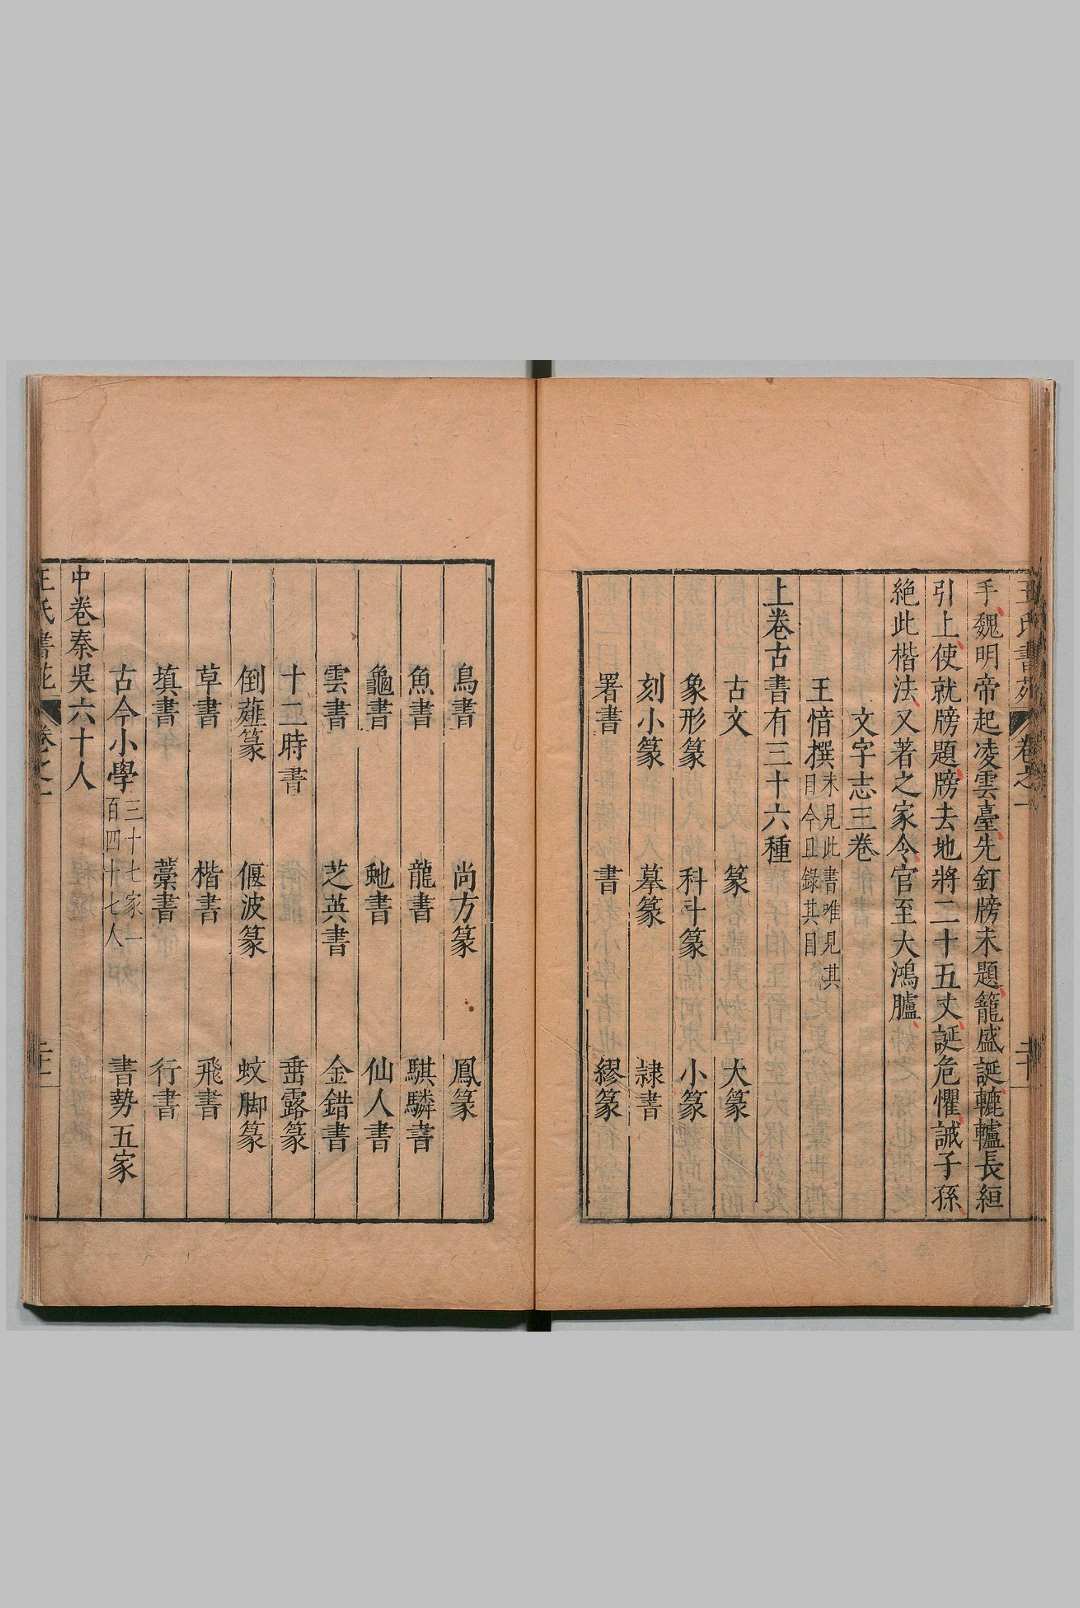 手魏明帝起凌雲臺先釘牓未題籠盛誕轆轤長絙
引上使就牓題牓去地將二十五丈誕危懼誡子孫
絶此楷法又著之家令官至大鴻臚
文字志三卷
王愔撰未見此書唯見其目今且錄其目
上卷古書有三十六種
古文 篆 大篆
象形篆 科斗篆 小篆
刻小篆 摹篆 隷書
署書 書 繆篆
鳥書 尚方篆 鳳篆
魚書 龍書 騏驎書
龜書 虵書 仙人書
雲書 芝英書 金錯書
十二時書 垂露篆
倒薤篆 偃波篆 蚊脚篆
草書 楷書 飛書
填書 藁書 行書
古今小學三十七家一百四十七人 書勢五家
中卷秦吳六十人
王氏書苑 卷之一